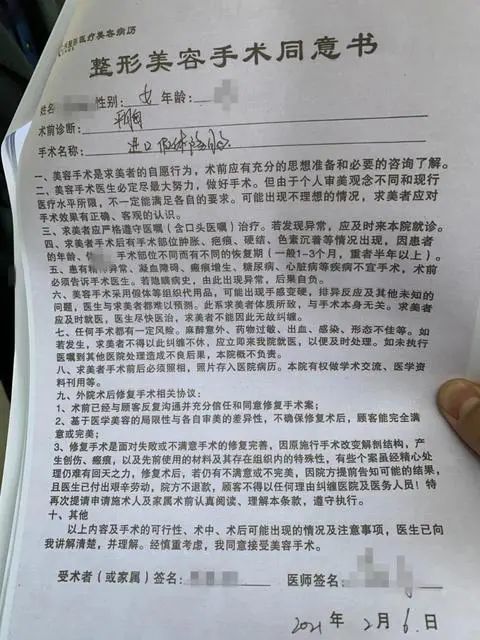 医疗美容病历
整形美容手术同意书
姓名 性别: 女 年龄:
术前诊断:
手术名称: 进口假体隆胸
一、美容手术是求美者的自愿行为，术前应有充分的思想准备和必要的咨询了解。
二、美容手术医生必定尽最大努力，做好手术。但由于个人审美观念不同和现行
医疗水平所限，不一定能满足各自的要求。可能出现不理想的情况，求美者应对
手术效果有正确、客观的认识。
三、求美者应严格遵守医嘱（含口头医嘱）治疗。若发现异常，应及时来本院就诊。
四、求美者手术后有手术部位肿胀、疤痕、硬结、色素沉着等情况出现，因患者
的年龄、 手术部位不同而有不同的恢复期（一般1-3个月，重者半年以上）。
五、患有精神异常、凝血障碍、瘢痕增生、糖尿病、心脏病等疾病不宜手术，术前
必须告诉手术医生。若隐瞒病史，由此出现异常，后果自负。
六、美容手术采用假体等组织代用品，可能出现手感变硬，排异反应及其他未知的
问题，医生与求美者都难以预测。此系求美者体质所致，与手术本身无关。求美者
应及时就医，医生尽快医治，求美者不能因此无故纠缠。
七、任何手术都有一定风险。麻醉意外、药物过敏、出血、感染、形态不佳等。如
若发生，求美者不得以此纠缠不休，应立即来我院就医，以便及时处理。如未执行
医嘱到其他医院处理造成不良后果，本院概不负责。
八、求美者手术前后必须照相，照片存入医院病历。本院有权做学术交流、医学资
料刊用等。
九、外院术后修复手术相关协议:
1、术前已经与顾客反复沟通并充分信任和同意修复手术案；
2、基于医学美容的局限性与各自审美的差异性，不确保修复术后，顾客能完全满
意或完美；
3、修复手术是面对失败或不满意手术的修复完善，因原施行手术改变解剖结构，产
生创伤、瘢痕，以及先前使用的材料及其存在组织内的特殊性，有些个案虽经精心处
理仍难有回天之力，修复术后，若仍有不满意或不完美，因院方提前告知可能的结果，
且医生已付出艰辛劳动，院方不退款，顾客不得以任何理由纠缠医院及医务人员！特
再次提请申请施术人及家属术前认真阅读、理解本条款，遵守执行。
十、其他
以上内容及手术的可行性、术中、术后可能出现的情况及注意事项，医生已向
我讲解清楚，并理解。经慎重考虑，我同意接受美容手术。
受术者（或家属）签名: 医师签名:
2021 年 2 月 6 日